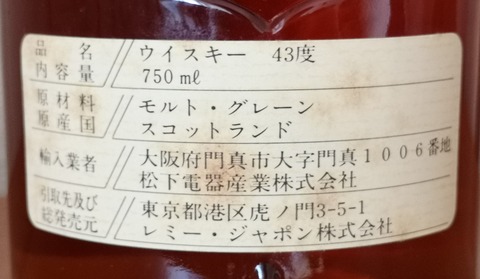 品名 ウイスキー 43度
内容量 750㎖
原材料 モルト・グレーン
原産国 スコットランド
輸入業者 大阪府門真市大字門真1006番地
松下電器産業株式会社
引取先及び 東京都港区虎ノ門3-5-1
総発売元 レミー・ジャポン株式会社